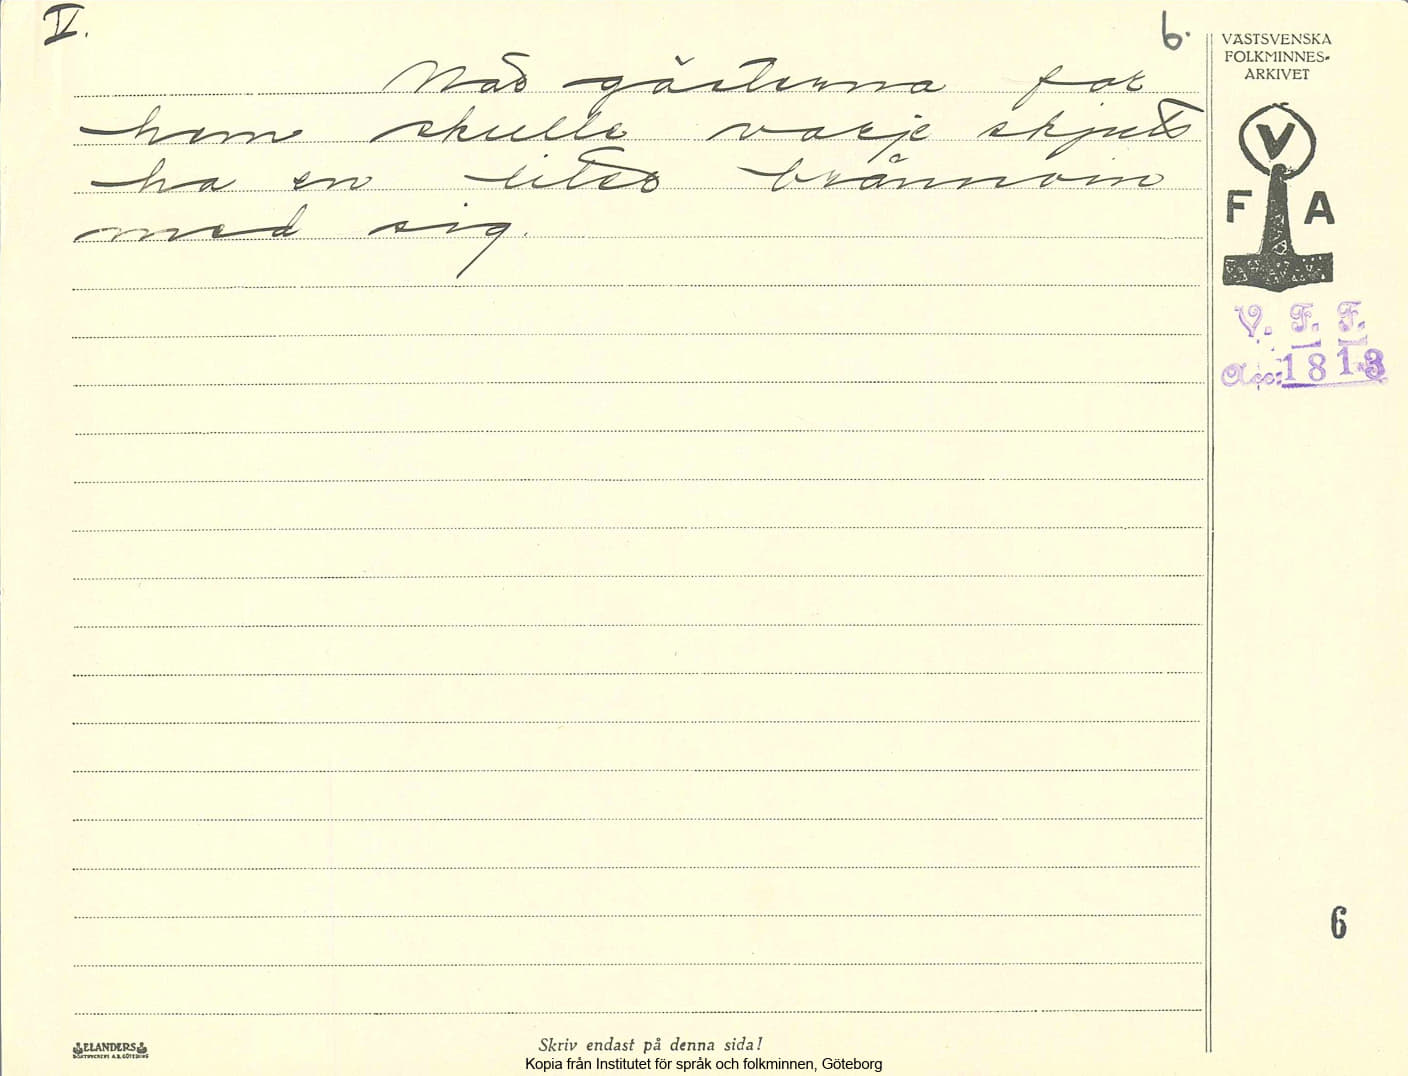 V.
6.
När gästerna for
hem skulle varje skjuts
ha en liter brännvin
med sig.
VÄSTSVENSKA
FOLKMINNES-
ARKIVET
V
F A
V. F. F.
Acc: 1813
6
ELANDERS
BOKTRYCKERI A.B. GÖTEBORG
Skriv endast på denna sida!
Kopia från Institutet för språk och folkminnen, Göteborg